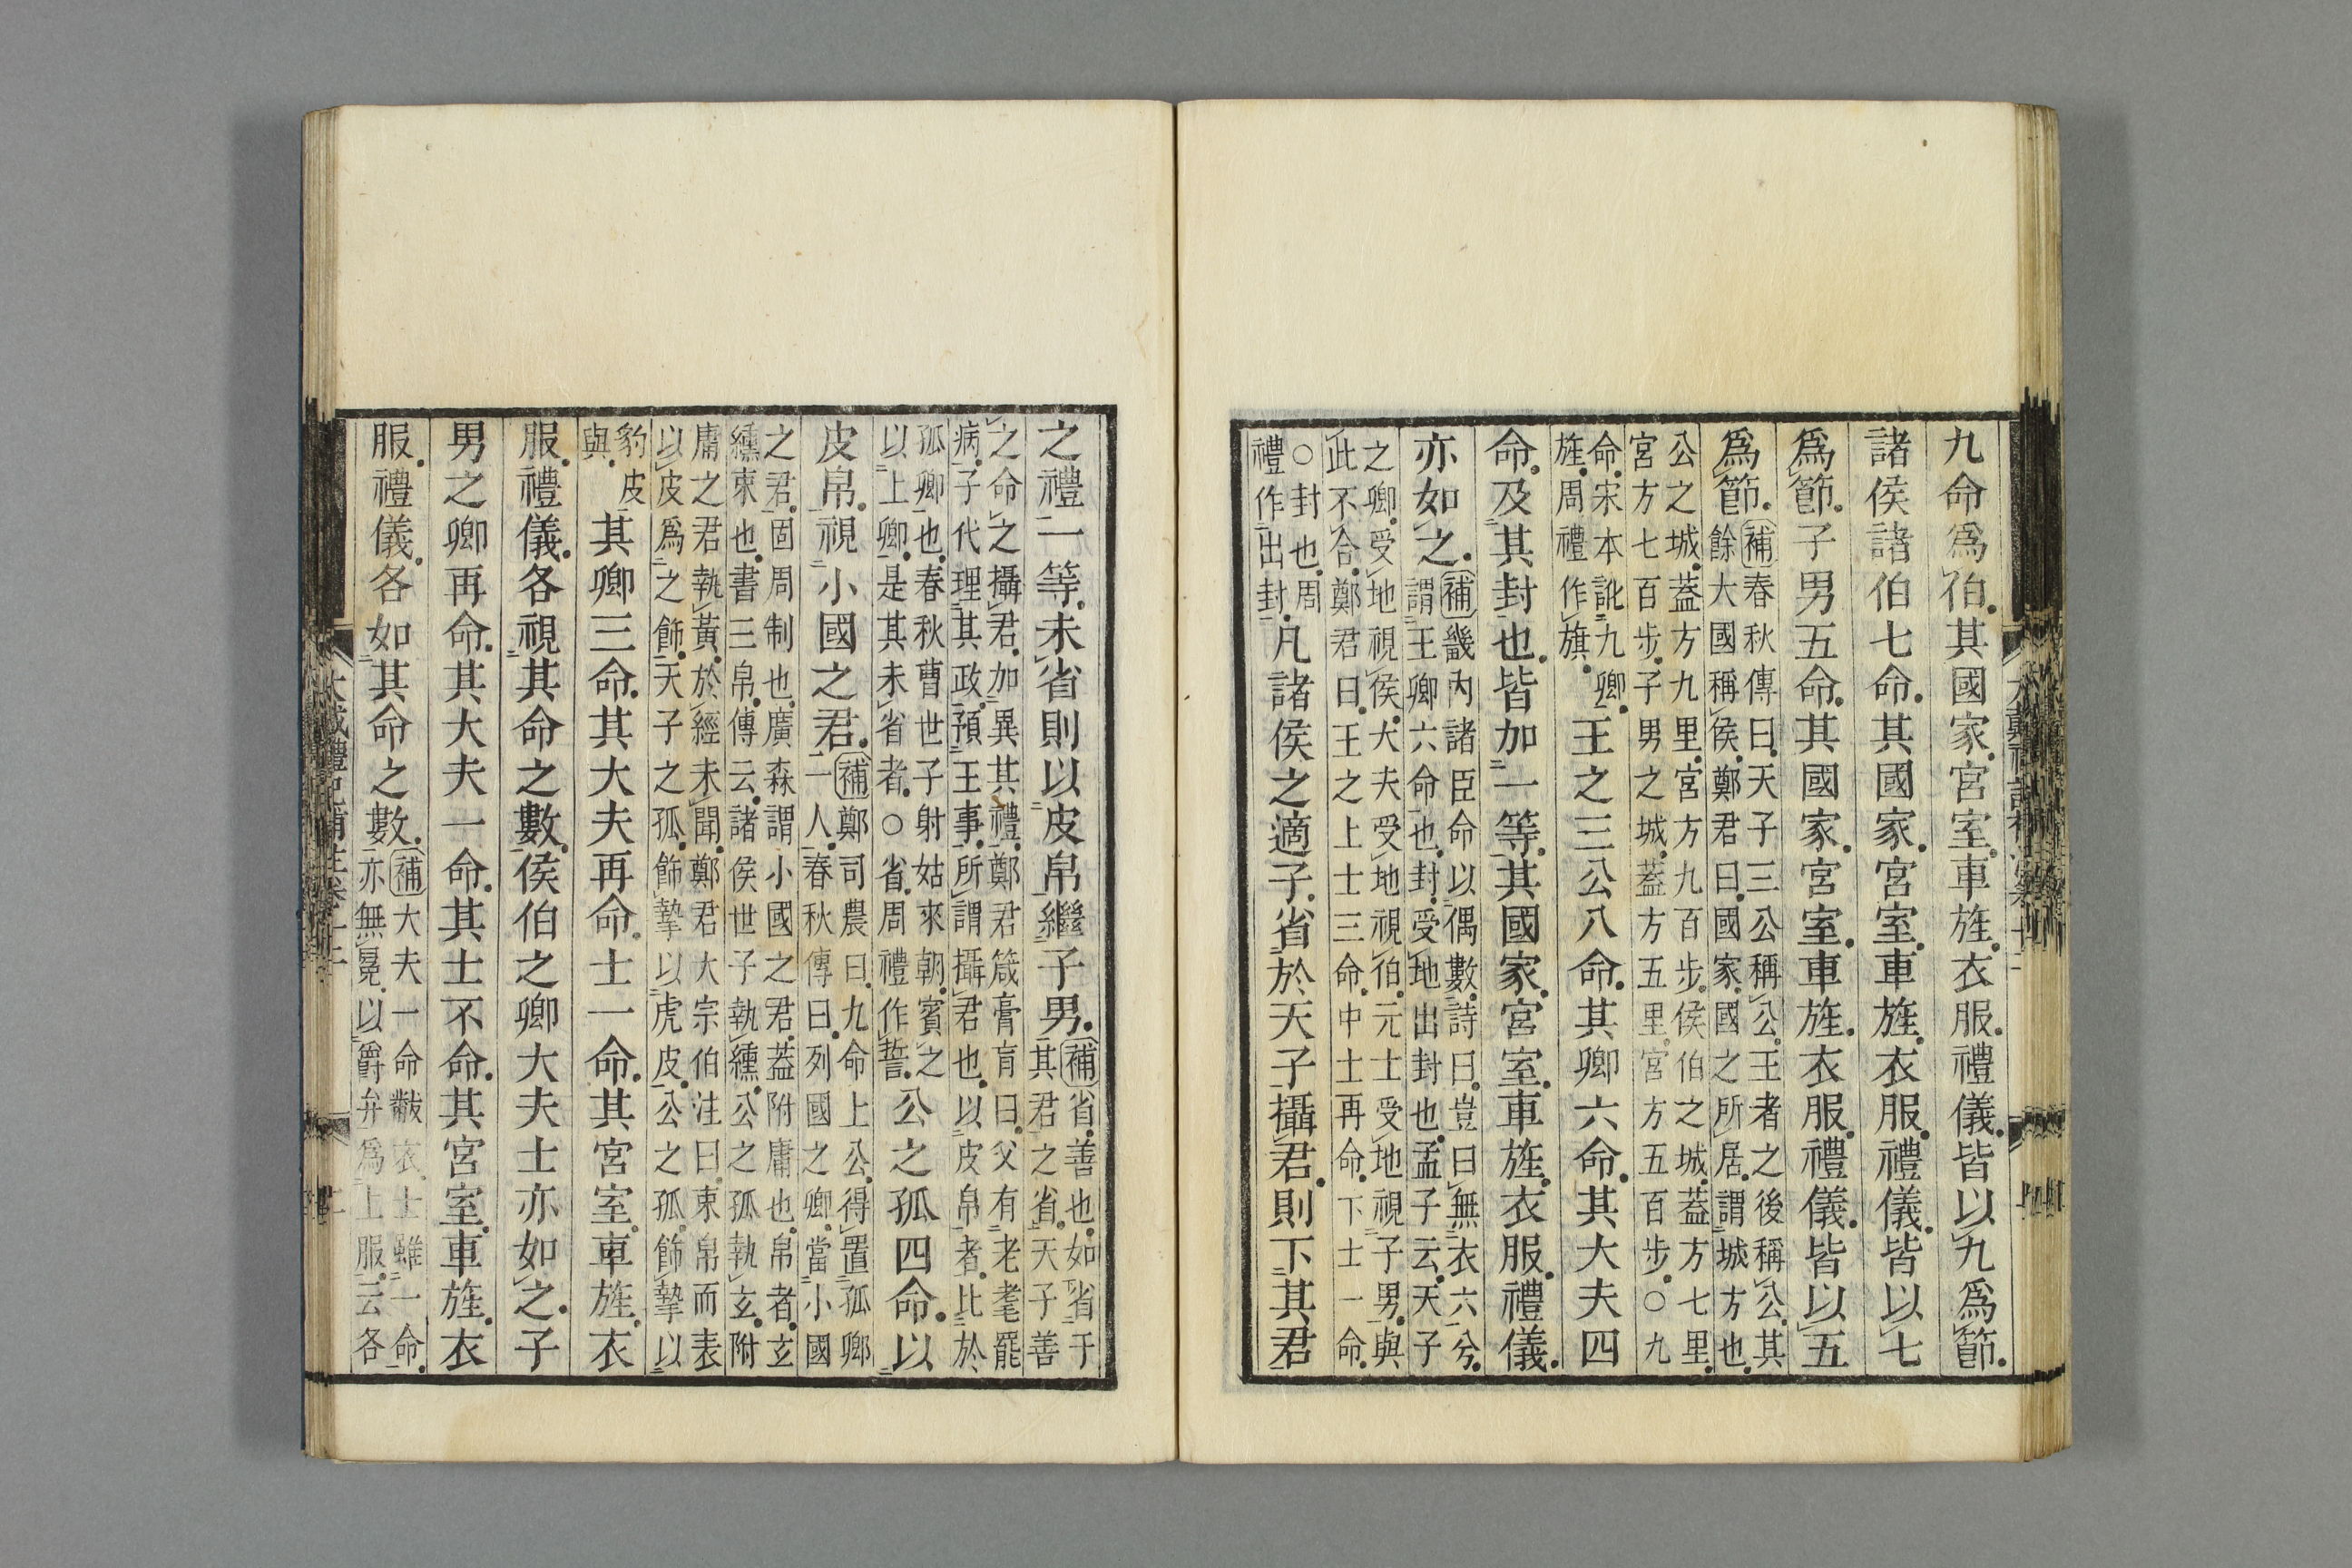 九命爲伯其國家宮室車旌衣服禮儀皆以九爲節
諸侯諸伯七命其國家宮室車旌衣服禮儀皆以七
爲節子男五命其國家宮室車旌衣服禮儀皆以五
爲節補春秋傳曰天子三公稱公王者之後稱公其
餘大國稱侯鄭君曰國家國之所居謂城方也
公之城蓋方九里宮方九百步侯伯之城蓋方七里
宮方七百步子男之城蓋方五里宮方五百步○九
命宋本訛九卿
旌周禮作旗
王之三公八命其卿六命其大夫四
命及其封也皆加一等其國家宮室車旌衣服禮儀
亦如之補畿內諸臣命以偶數詩曰豈曰無衣六兮
謂王卿六命也封受地出封也孟子云天子
之卿受地視侯大夫受地視伯元士受地視子男與
此不合鄭君曰王之上士三命中士再命下士一命
○封也周
禮作出封
凡諸侯之適子省於天子攝君則下其君
之禮一等未省則以皮帛繼子男補省善也如省于
其君之省天子善
之命之攝君加異其禮鄭君箴膏肓曰父有老耄罷
病子代理其政預王事所謂攝君也以皮帛者比於
孤卿也春秋曹世子射姑來朝賓之
以上卿是其未省者○省周禮作誓
公之孤四命以
皮帛視小國之君補鄭司農曰九命上公得置孤卿
一人春秋傳曰列國之卿當小國
之君固周制也廣森謂小國之君蓋附庸也帛者玄
纁束也書三帛傳云諸侯世子執纁公之孤執玄附
庸之君執黃於經未聞鄭君大宗伯注曰束帛而表
以皮爲之飾天子之孤飾摯以虎皮公之孤飾摯以
豹皮
與
其卿三命其大夫再命士一命其宮室車旌衣
服禮儀各視其命之數侯伯之卿大夫士亦如之子
男之卿再命其大夫一命其士不命其宮室車旌衣
服禮儀各如其命之數補大夫一命黻衣士雖一命
亦無冕以爵弁爲上服云各